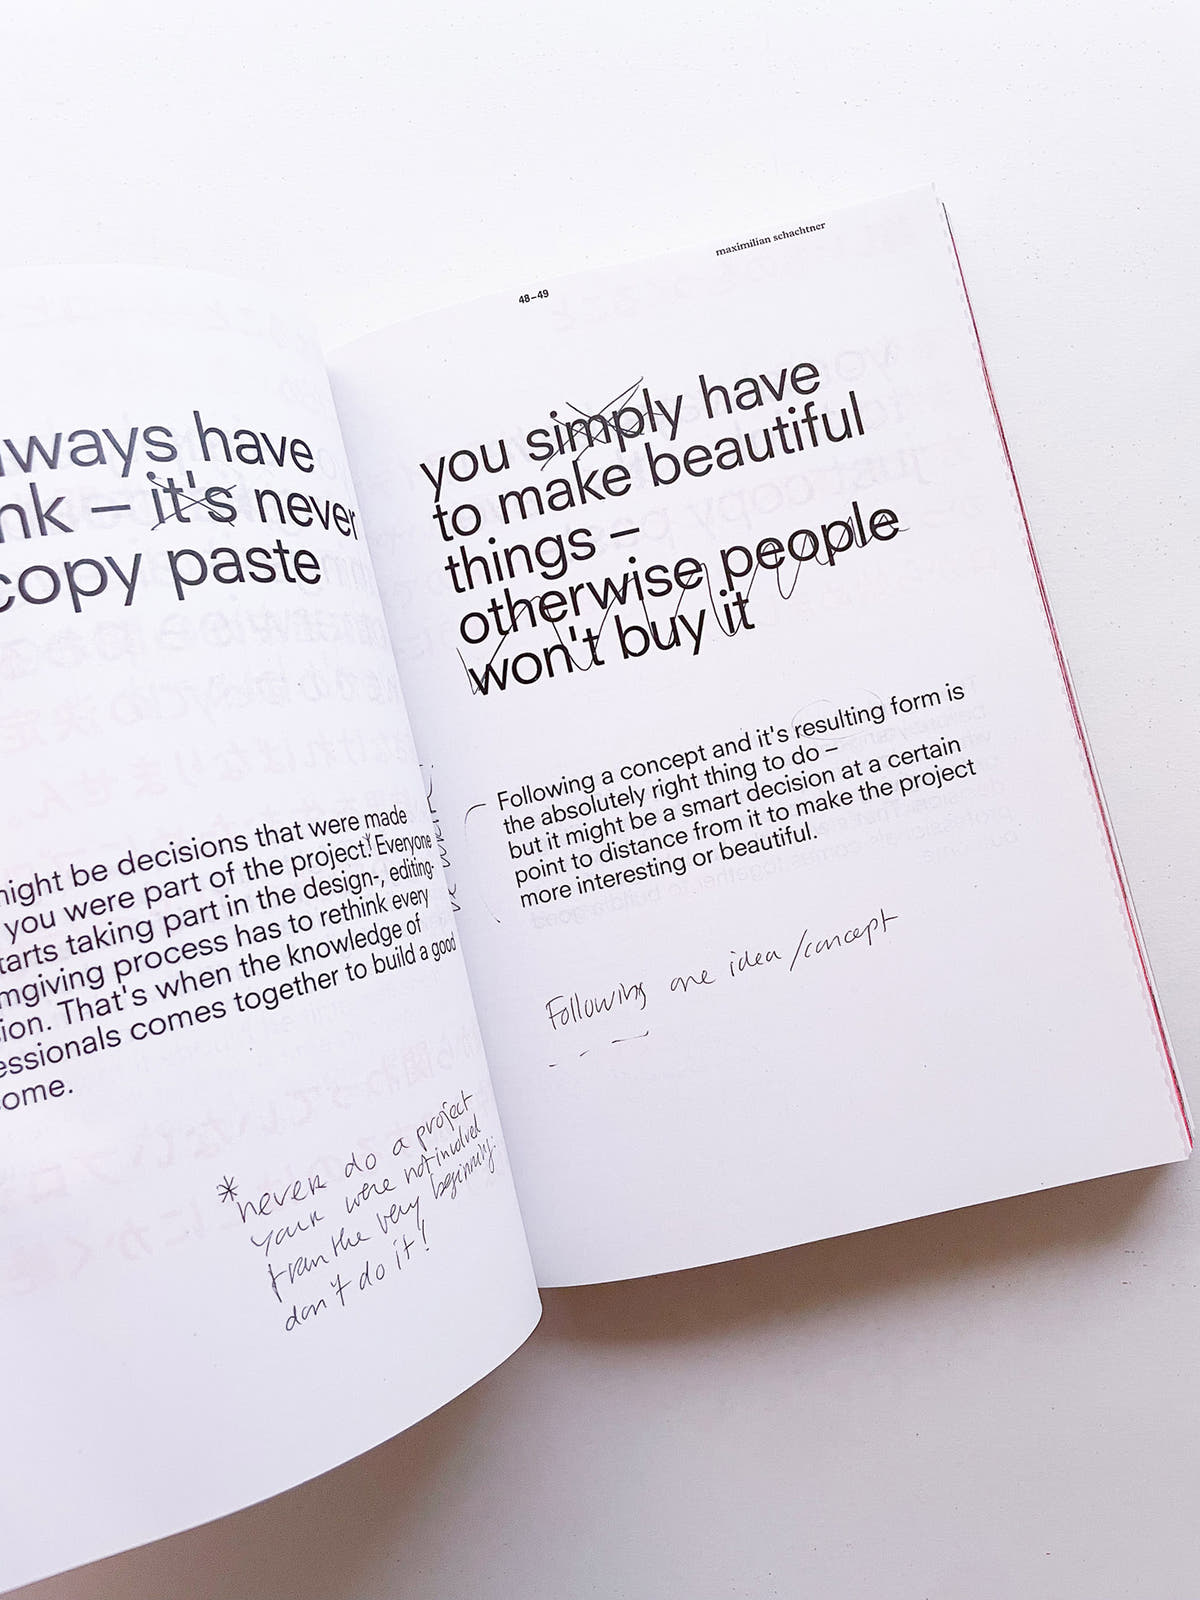 lways have
nk – it's never
copy paste
might be decisions that were made
you were part of the project.* Everyone
tarts taking part in the design-, editing-
mgiving process has to rethink every
ion. That's when the knowledge of
essionals comes together to build a good
ome.
*never do a project
your were not involved
from the very beginning.
don't do it!
48–49
maximilian schachtner
you simply have
to make beautiful
things –
otherwise people
won't buy it
Following a concept and it's resulting form is
the absolutely right thing to do –
but it might be a smart decision at a certain
point to distance from it to make the project
more interesting or beautiful.
Following one idea/concept